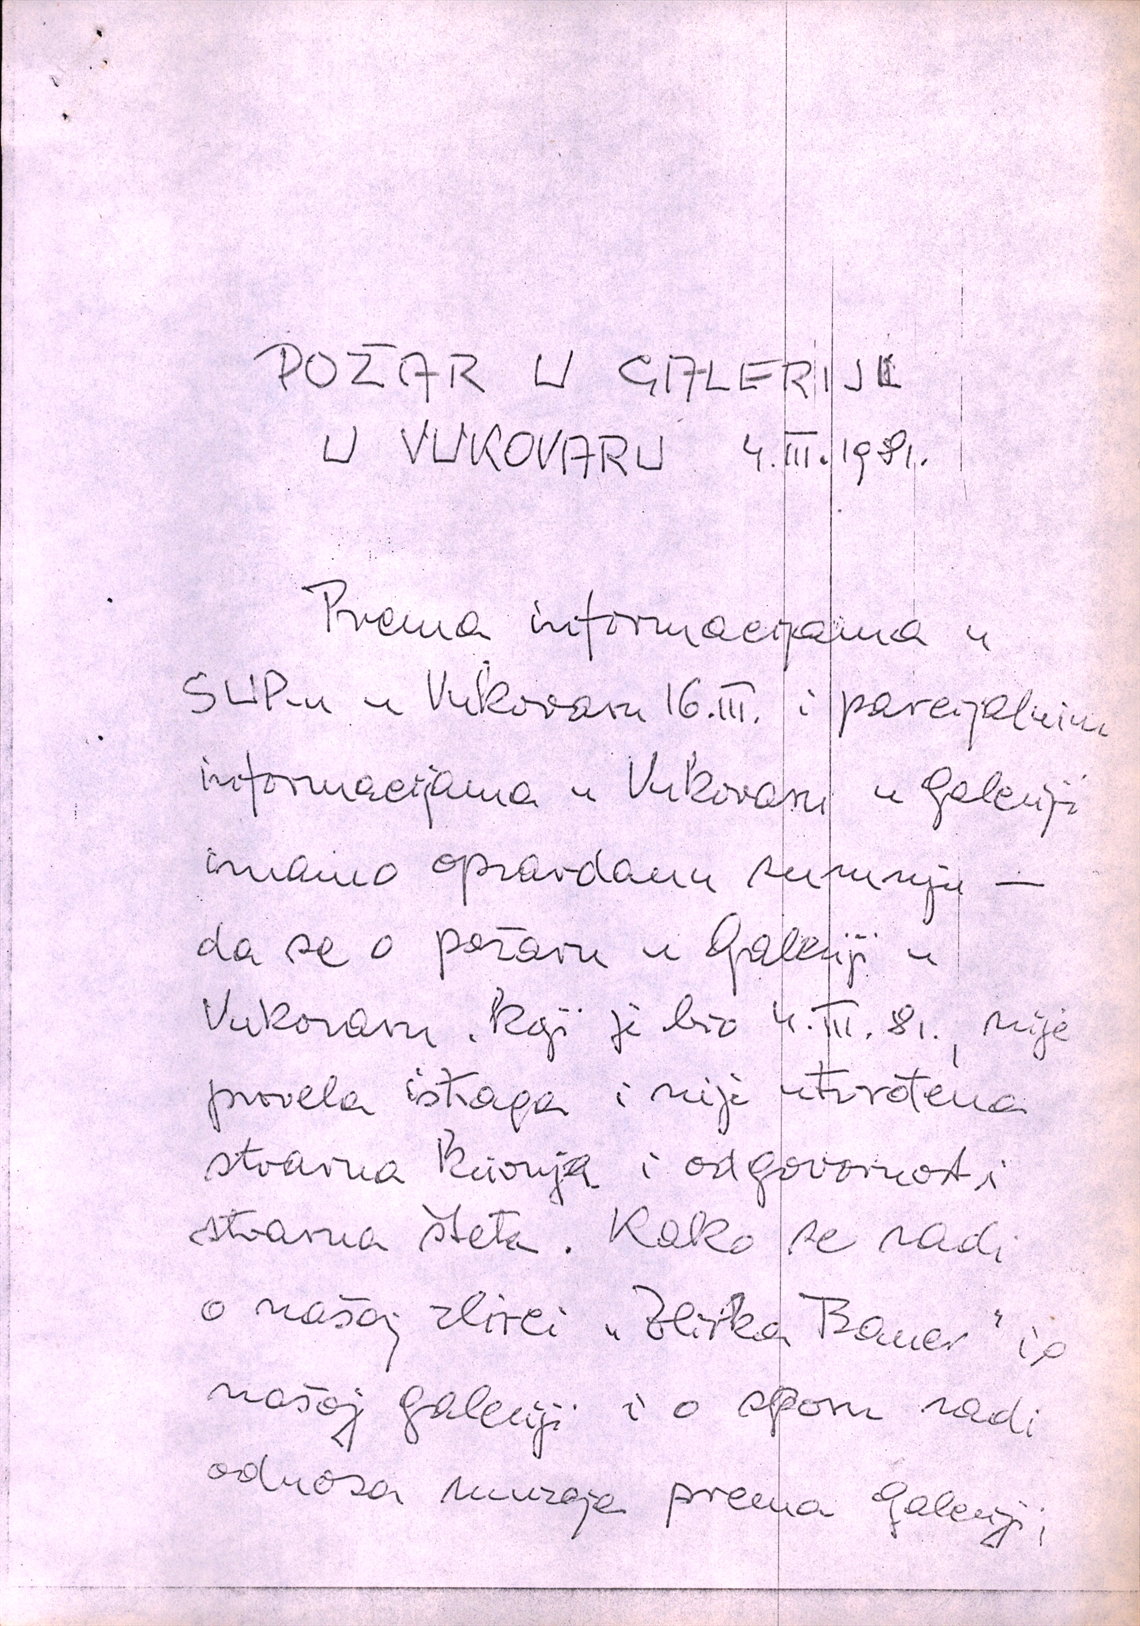 POŽAR U GALERIJI
U VUKOVARU 4.III.1981.
Prema informacijama u
SUP-u u Vukovaru 16.III. i parcijalnim
informacijama u Vukovaru u Galeriji
imamo opravdanu sumnju —
da se o požaru u Galeriji u
Vukovaru, koji je bio 4.III.81., nije
provela istraga i nije utvrđena
stvarna krivnja i odgovornost i
stvarna šteta. Kako se radi
o našoj zbirci „Zbirka Bauer" i o
našoj galeriji i o sporu radi
odnosa muzeja prema Galeriji i